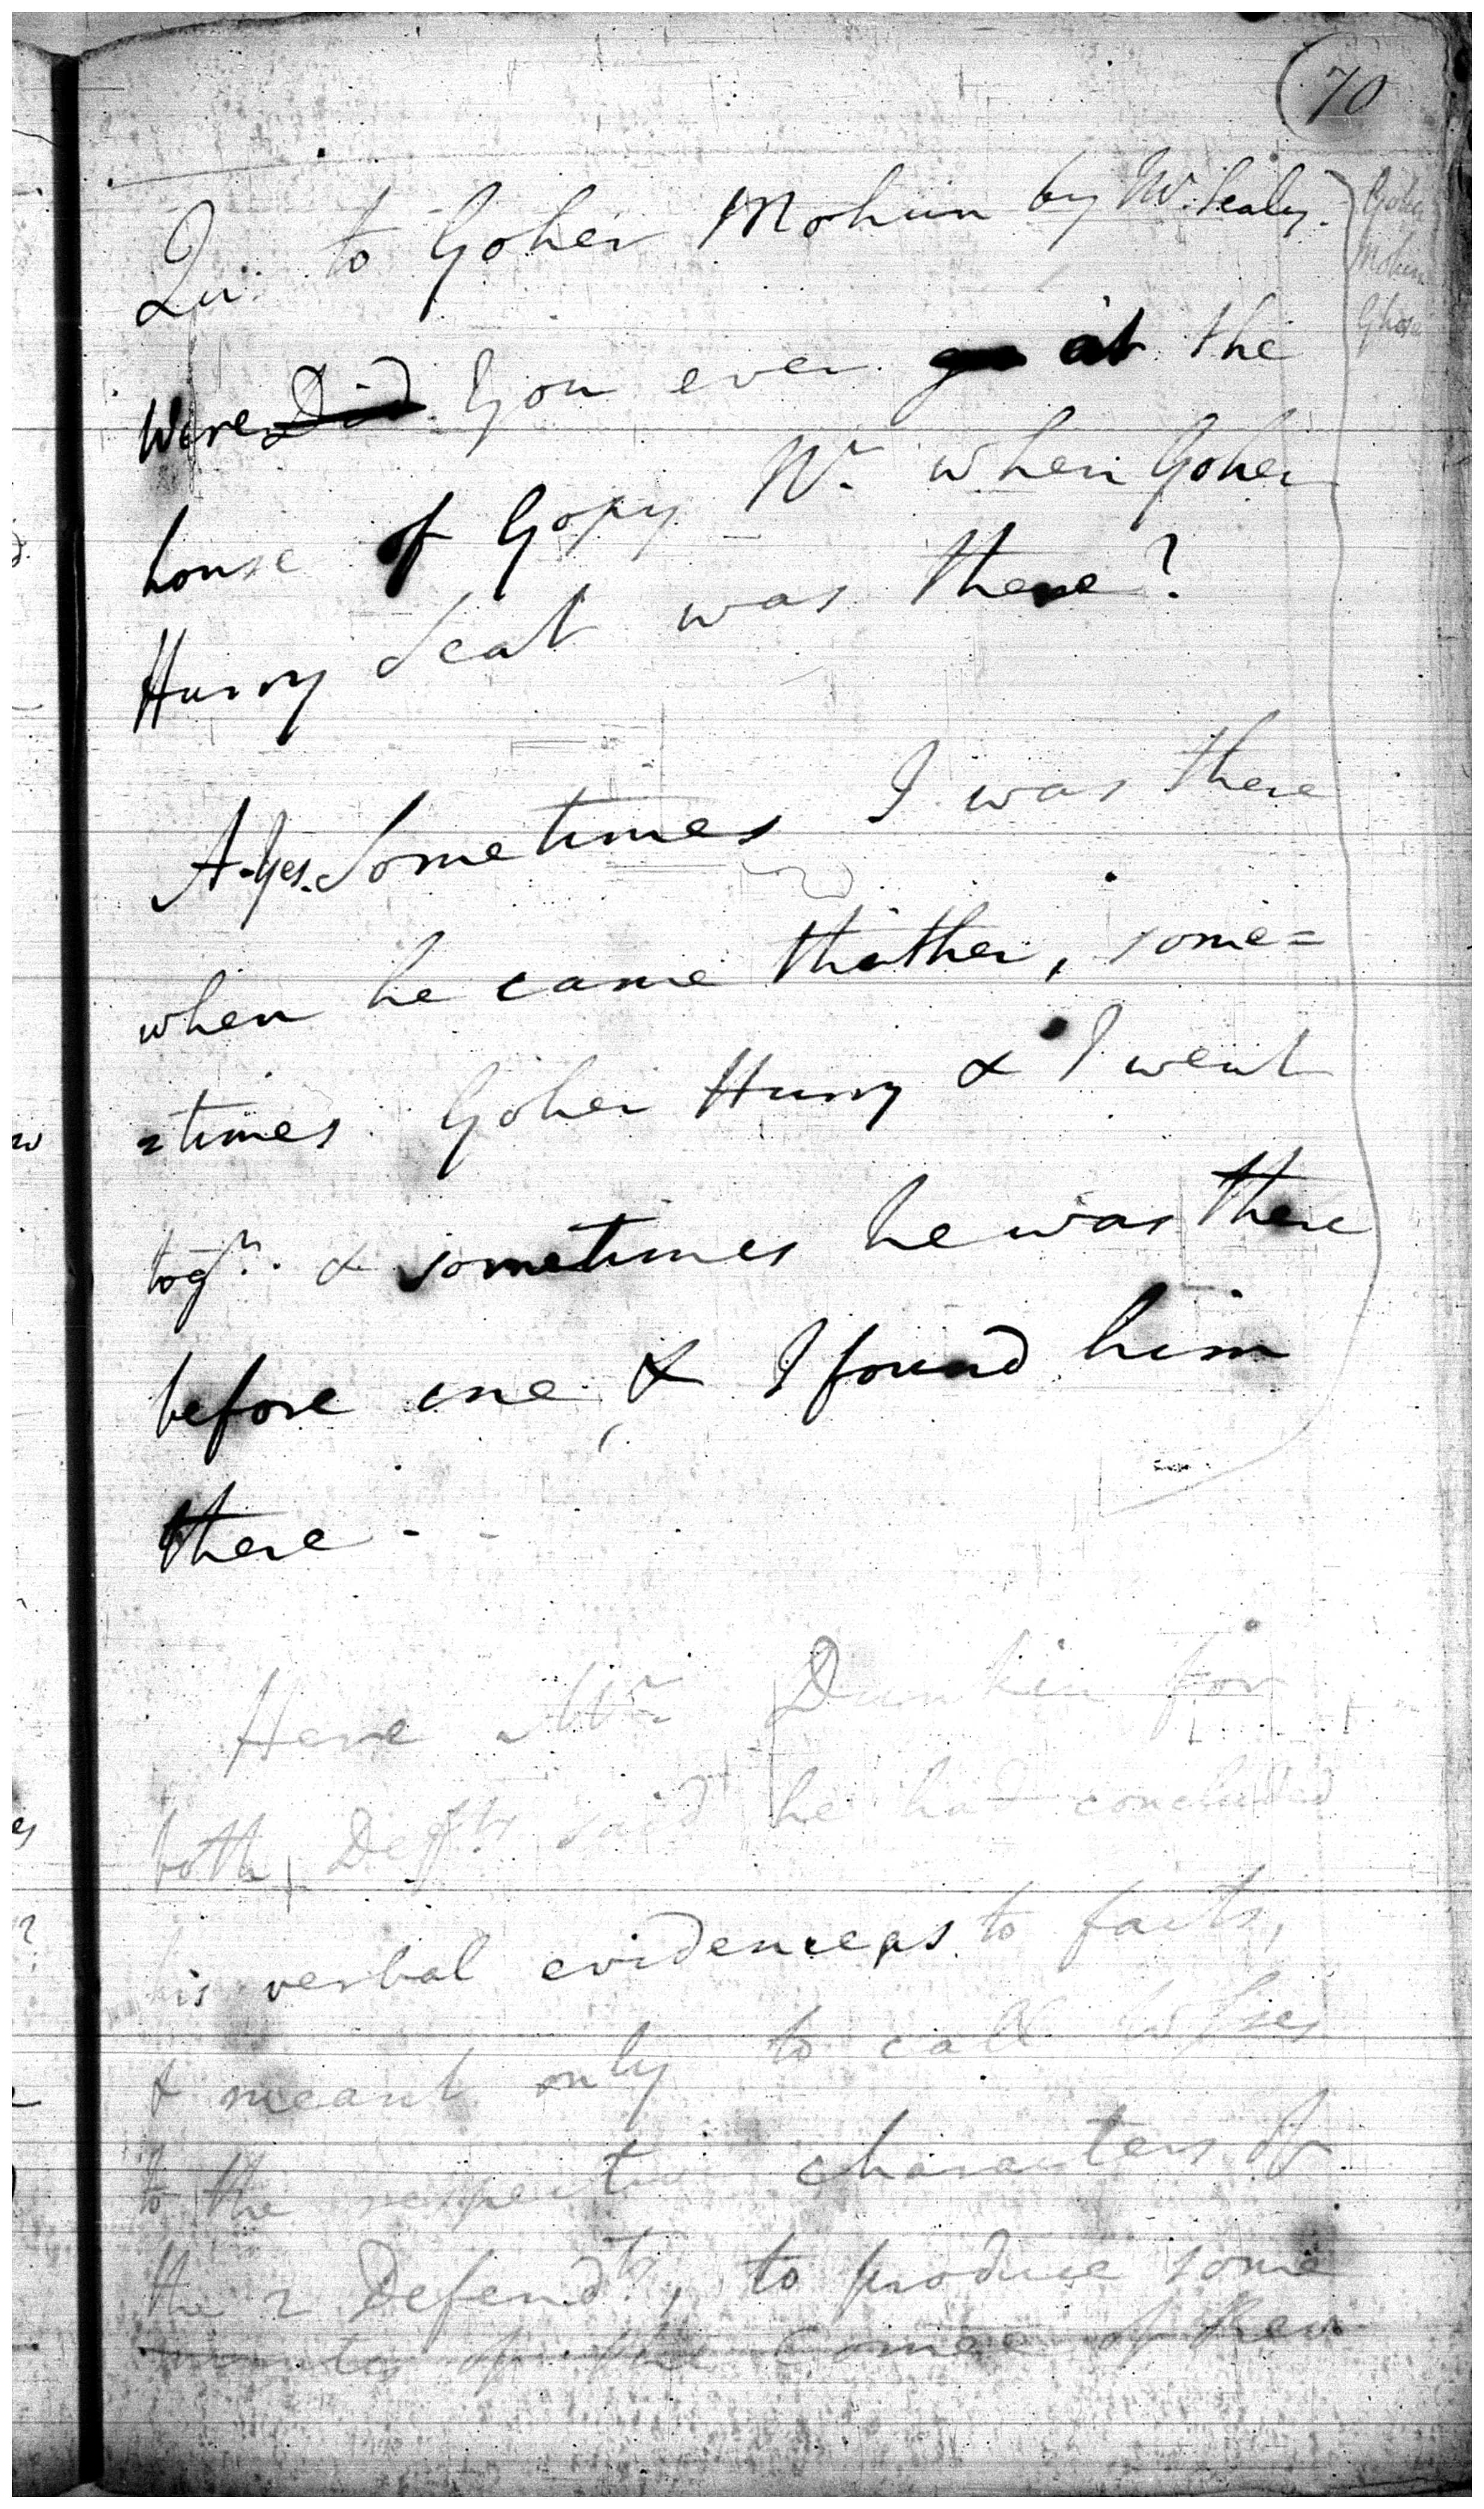 70
Qu. to Goher Mohun by Mr. Sealy.
Goher
Mohun
Ghose
Were Did you ever go at the
house of Gopy Nr. when Goher
Hurry Seat was there?
A. Yes. Sometimes I was there
when he came thither, some=
=times Goher Hurry & I went
togr. & sometimes he was there
before me, & I found him
there - -
Here Mr Dunkin for
both Defts said he had concluded
his verbal evidence as to facts,
& meant only to call
to the respective characters of
the 2 Defendts, to produce some
of the Comee of Rev